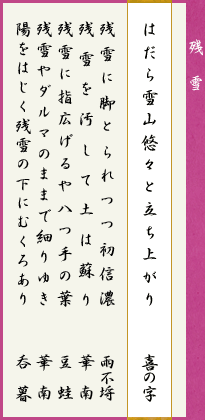 残雪
はだら雪山悠々と立ち上がり 喜の字
残雪に脚とられつつ初信濃 雨不埒
残雪を汚して土は蘇り 華南
残雪に指広げるや八つ手の葉 豆蛙
残雪やダルマのままで細りゆき 華南
陽をはじく残雪の下にむくろあり 呑暮